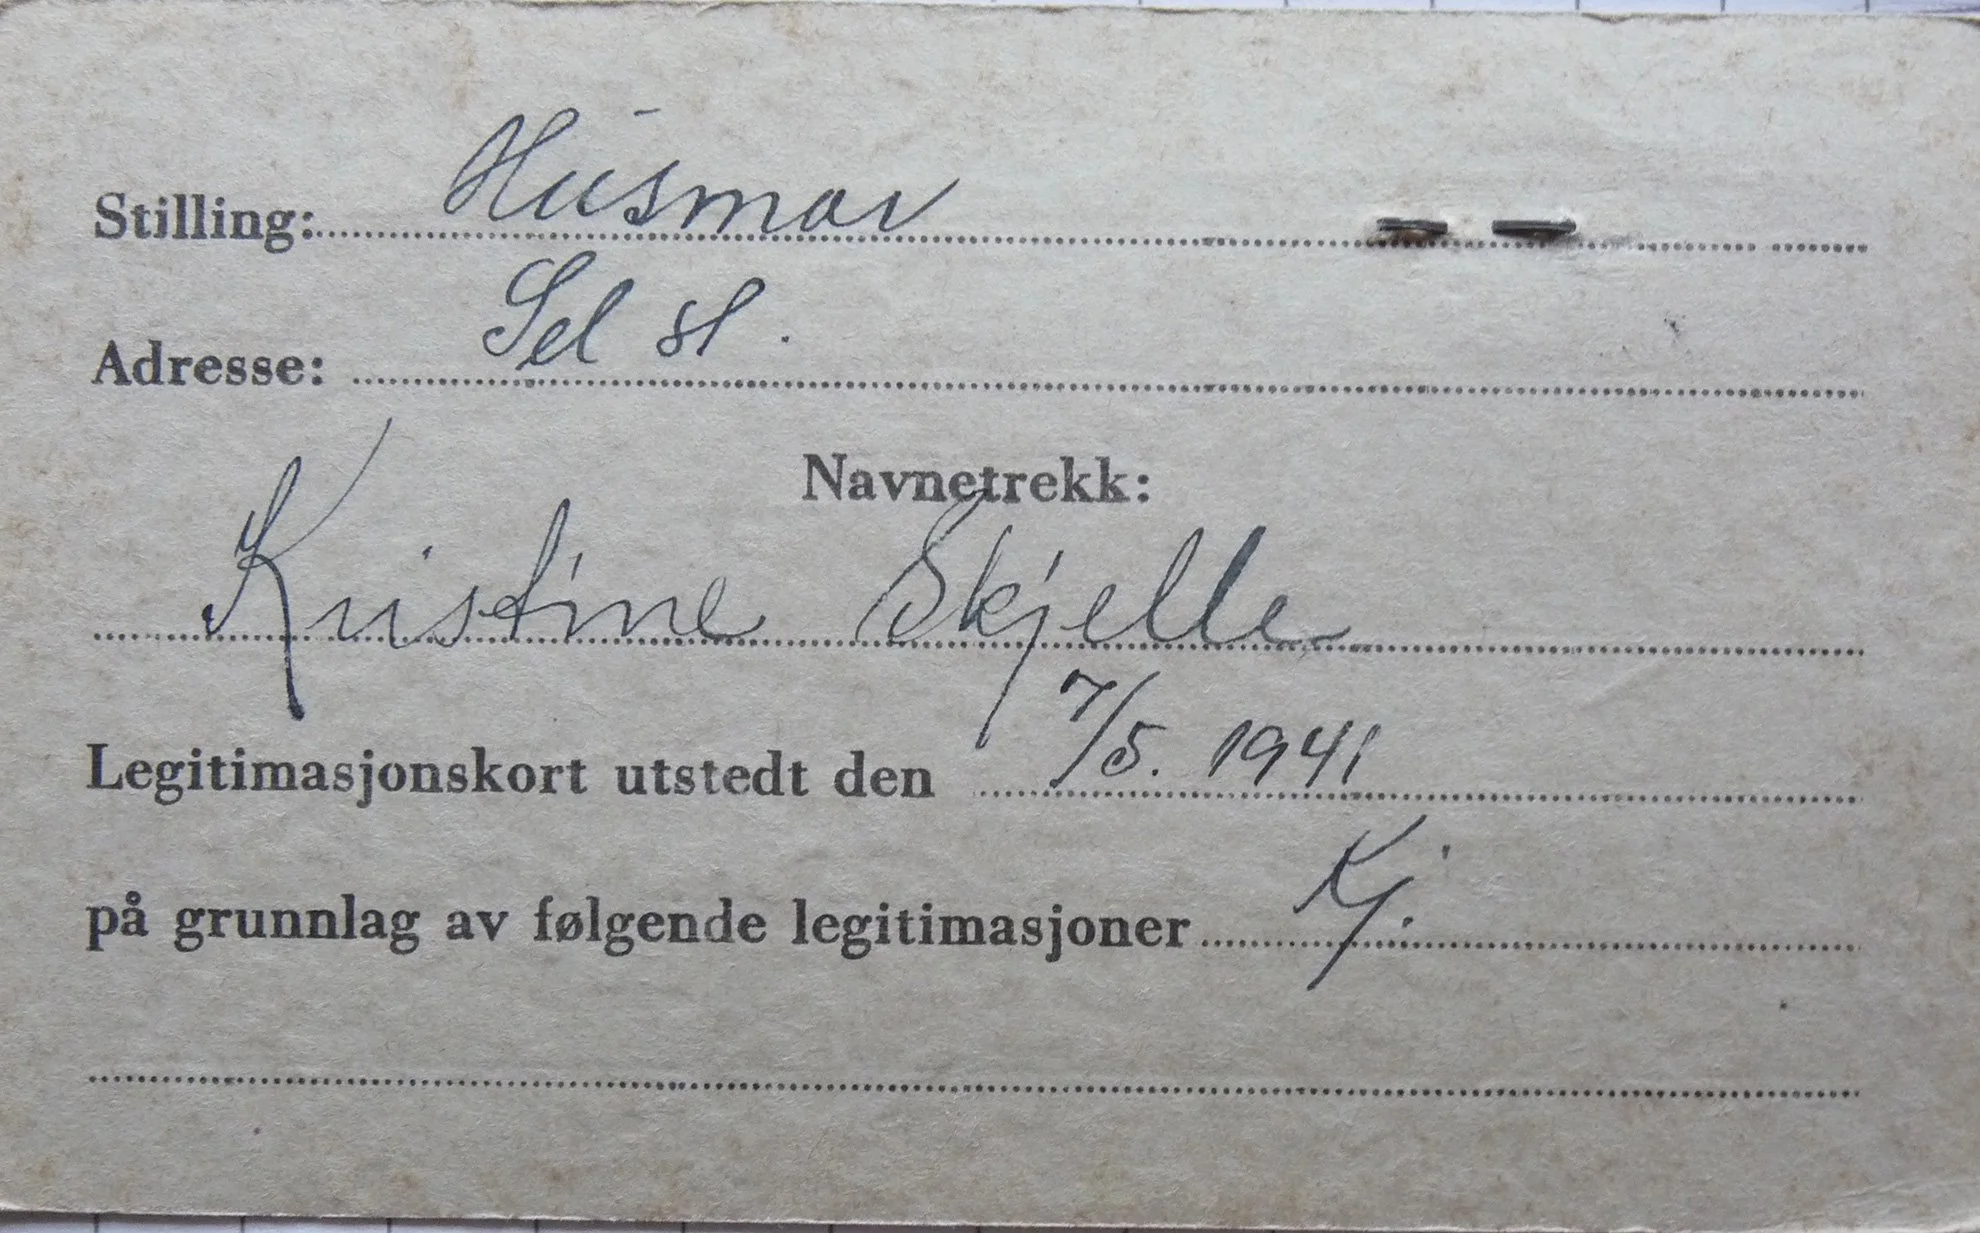 Stilling: Husmor
Adresse: Sel st.
Navnetrekk:
Kristine Skjelle
Legitimasjonskort utstedt den 7/5. 1941
på grunnlag av følgende legitimasjoner Kj.